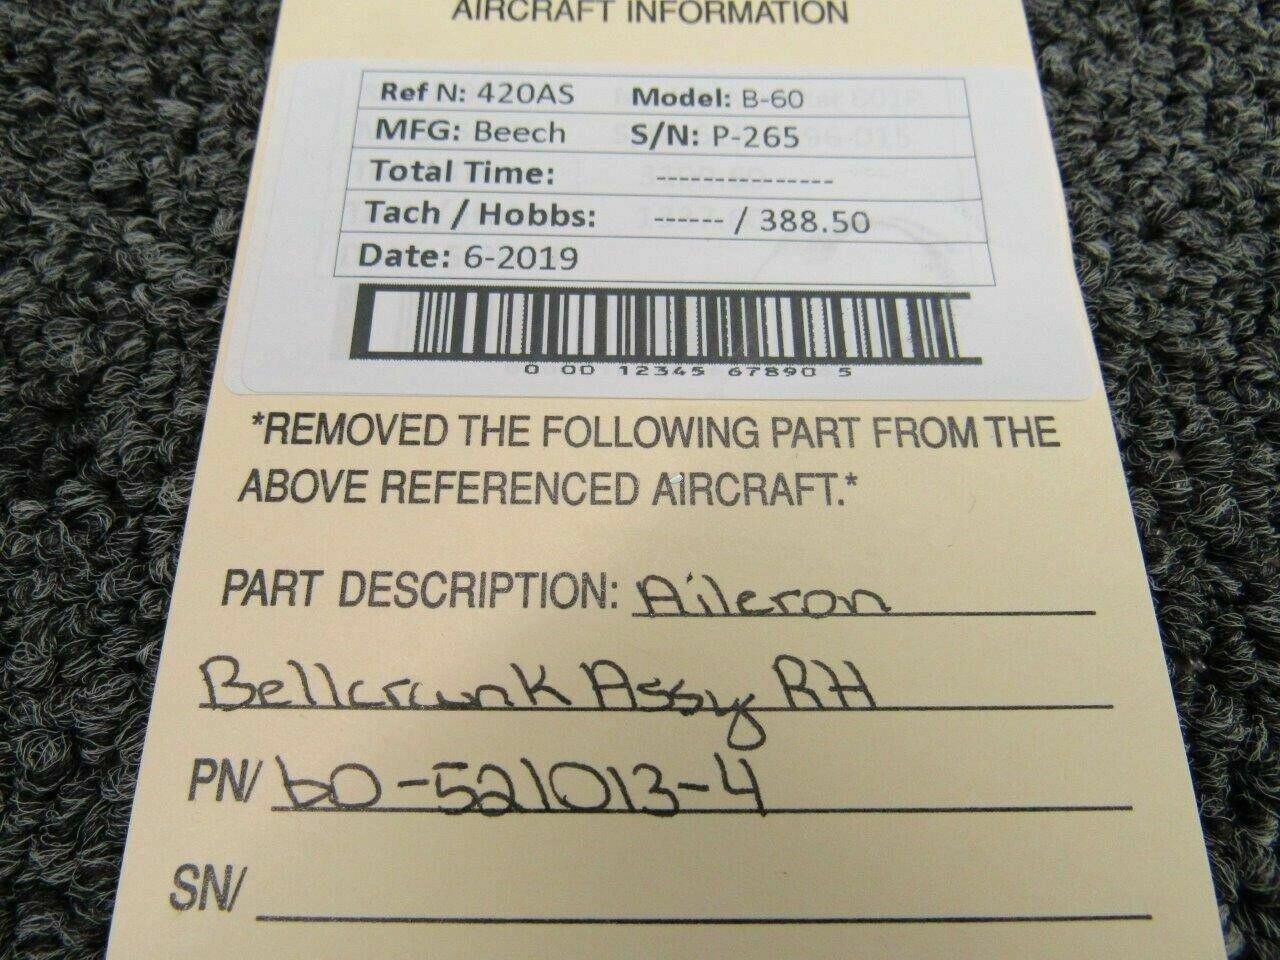 AIRCRAFT INFORMATION
Ref N: 420AS Model: B-60
MFG: Beech S/N: P-265
Total Time: ---------------
Tach / Hobbs: ------ / 388.50
Date: 6-2019
0 00 12345 67890 5
*REMOVED THE FOLLOWING PART FROM THE
ABOVE REFERENCED AIRCRAFT.*
PART DESCRIPTION: Aileron
Bellcrank Assy RH
PN/ 60-521013-4
SN/